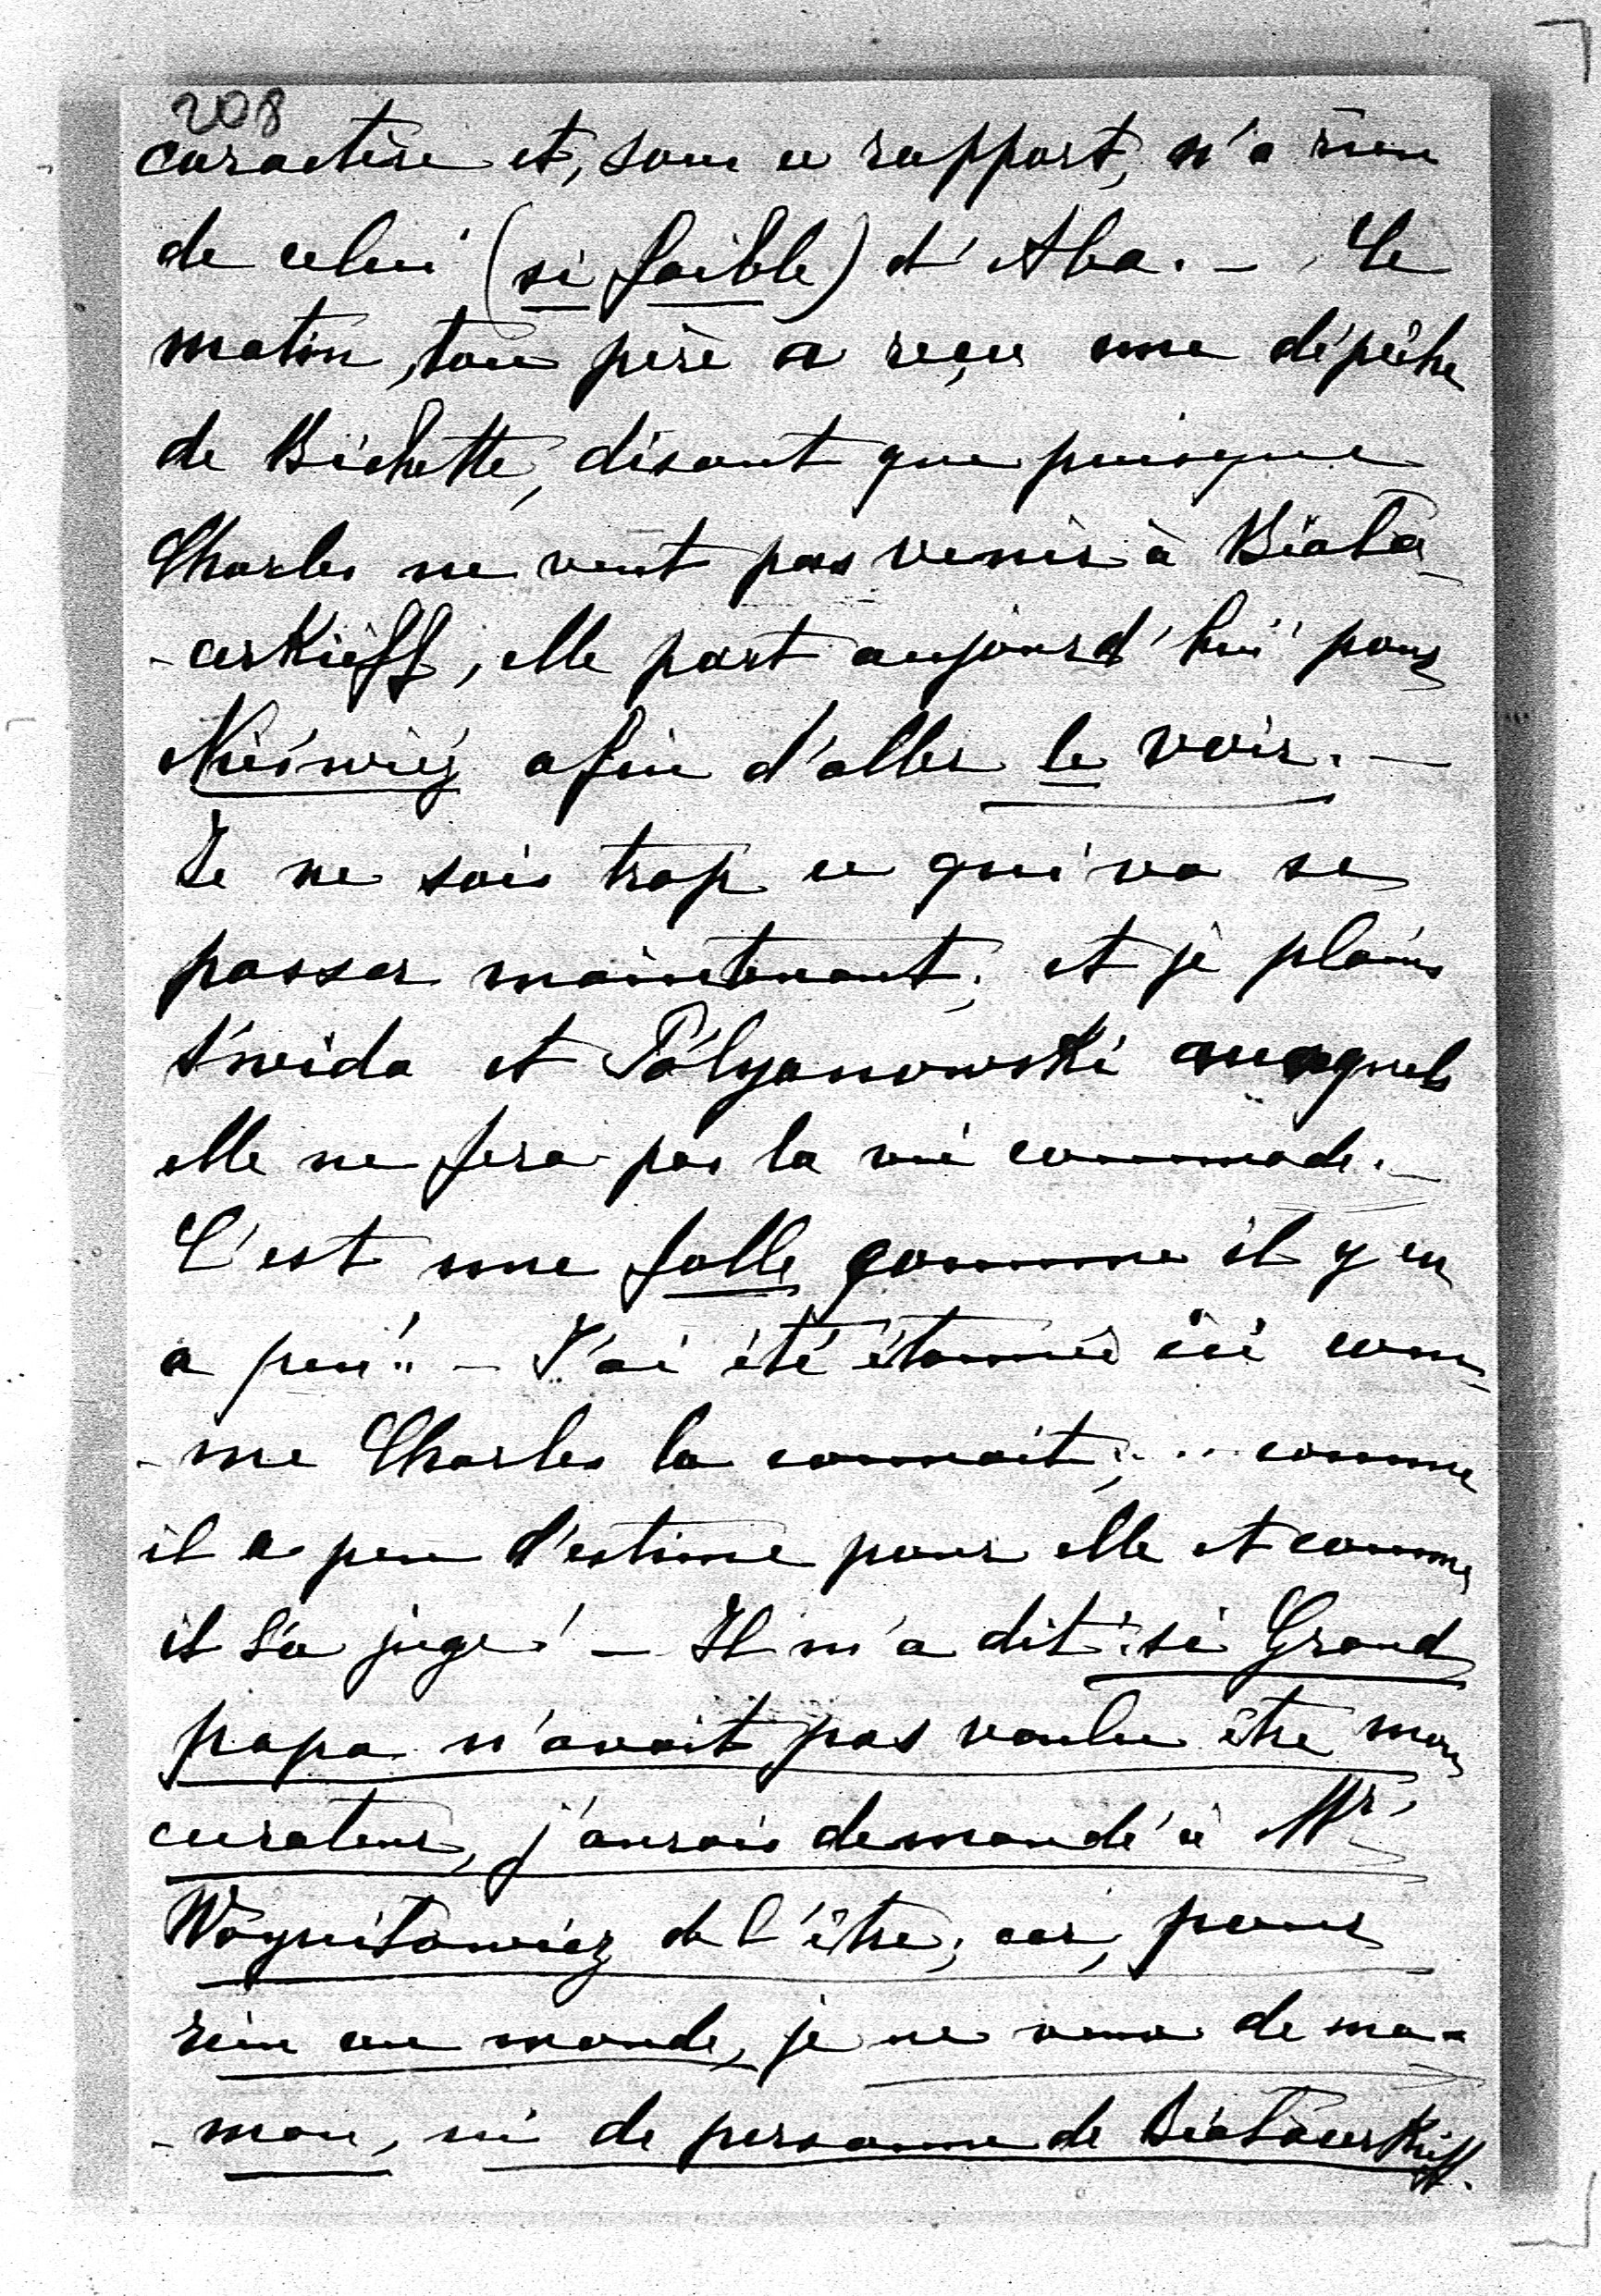 208
caractère et, sous ce rapport, n'a rien
de celui (si faible) d'Aba. - Ce
matin, ton père a reçu une dépêche
de Bichette, disant que puisque
Charles ne veut pas venir à Biała-
-cerkieff, elle part aujourd'hui pour
Nieświéz afin d'aller le voir. -
Je ne sais trop ce qui va se
passer maintenant; et je plains
Świda et Pólyanowski auxquels
elle ne fera pas la vie commode. -
C'est une folle comme il y en
a peu!! - J'ai été étonnée ici com-
-me Charles la connait;... comme
il a peu d'estime pour elle et comme
il l'a jugé! - Il m'a dit: si Grand
papa n'avait pas voulu être mon
curateur, j'aurais demandé à Mr.
Woyniłowicz de l'être; car, pour
rien au monde, je ne veux de ma-
-man, ni de personne de Białacerkieff.